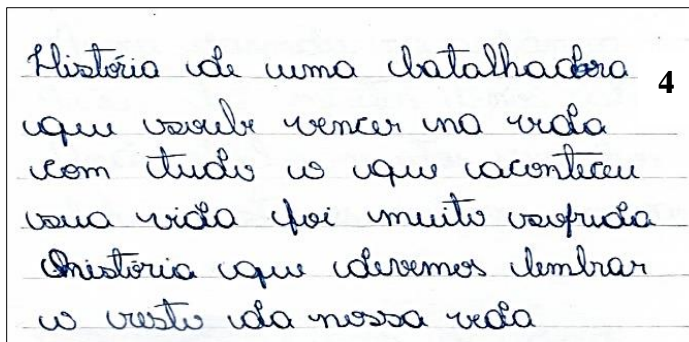 História de uma batalhadora 4
que soube vencer na vida
com tudo o que aconteceu
sua vida foi muito sofrida
história que devemos lembrar
o resto da nossa vida